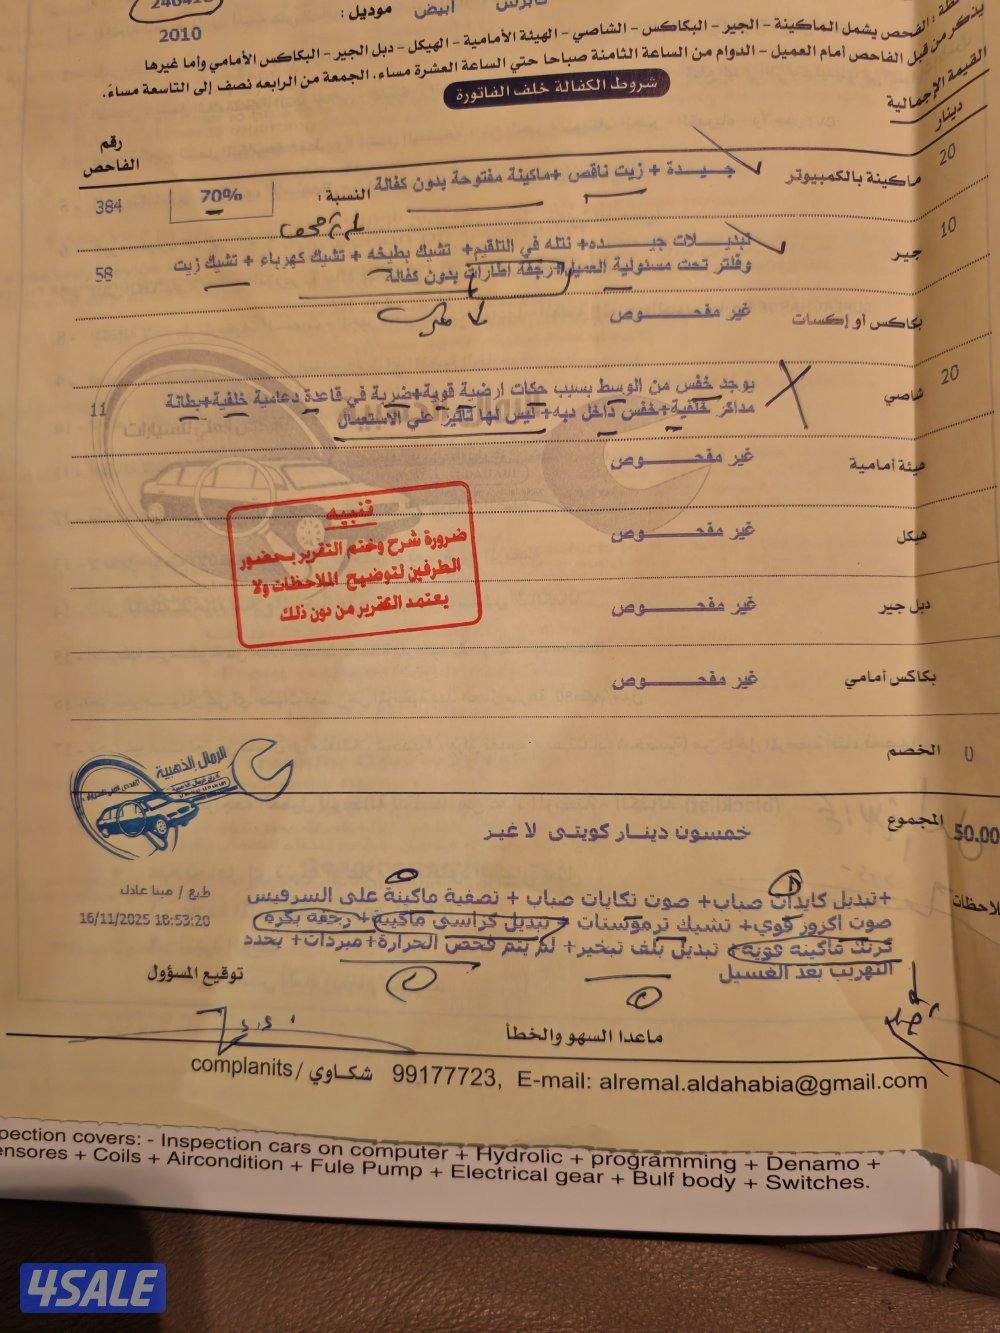 أبيض موديل :
2010
الفحص يشمل الماكينة - الجير - البكاكس - الشاصي - الهيئة الأمامية - الهيكل - دبل الجير - البكاكس الأمامي وأما غيرها
يذكر من قبل الفاحص أمام العميل - الدوام من الساعة الثامنة صباحا حتي الساعة العشرة مساء. الجمعة من الرابعه نصف إلى التاسعة مساءً.
القيمة الإجمالية
شروط الكفالة خلف الفاتورة
دينار
رقم الفاحص
20 ماكينة بالكمبيوتر جـيـــدة + زيت ناقص +ماكينة مفتوحة بدون كفالة النسبة : 70% 384
10 جير تبديـــلات جيـــــده+ نتله في التلقيم+ تشيك بطيخه + تشيك كهرباء + تشيك زيت
وفلتر تحت مسئولية العميل+رجفة اطارات بدون كفالة 58
بكاكس أو إكسات غير مفحـــــوص
20 شاصي يوجد خفس من الوسط بسبب حكات ارضية قوية+ضربة في قاعدة دعامية خلفية+بطانة
مداكر خلفية+خفس داخل دبه+ ليس لها تأثير علي الاستعمال 11
هيئة أمامية غير مفحـــــوص
هيكل غير مفحـــــوص
دبل جير غير مفحـــــوص
بكاكس أمامي غير مفحـــــوص
تنبيه
ضرورة شرح وختم التقرير بحضور
الطرفين لتوضيح الملاحظات ولا
يعتمد التقرير من دون ذلك
الخصم 0
الرمال الذهبية
المجموع 50.00
خمسون دينار كويتى لا غير
+تبديل كايدات صباب+ صوت تكايات صباب + تصفية ماكينة على السرفيس
صوت اكزوز قوي+ تشيك ترموستات + تبديل كراسي ماكينة+ رجفة بكره
كرنك ماكينه قويه+ تبديل بلف تبخير+ لم يتم فحص الحرارة+مبردات+ يحدد
التهريب بعد الغسيل
طبع / مينا عادل
16/11/2025 18:53:20
توقيع المسؤول
ماعدا السهو والخطأ
complanits/ شكاوي 99177723, E-mail: alremal.aldahabia@gmail.com
pection covers: - Inspection cars on computer + Hydrolic + programming + Denamo +
ensores + Coils + Aircondition + Fule Pump + Electrical gear + Bulf body + Switches.
4SALE